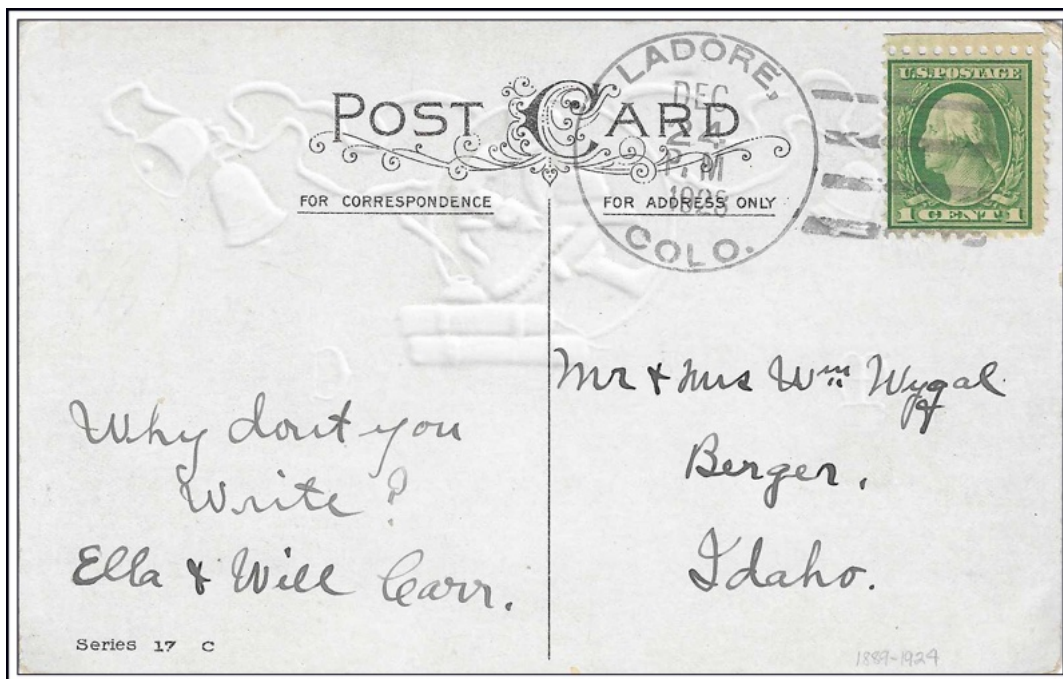 POST CARD
FOR CORRESPONDENCE
FOR ADDRESS ONLY
LADORE,
DEC
24
P M
COLO.
U.S. POSTAGE
1 CENT 1
Why dont you
Write?
Ella & Will Carr.
Mr & Mrs Wm Wygal
Berger,
Idaho.
Series 17 C
1889-1924